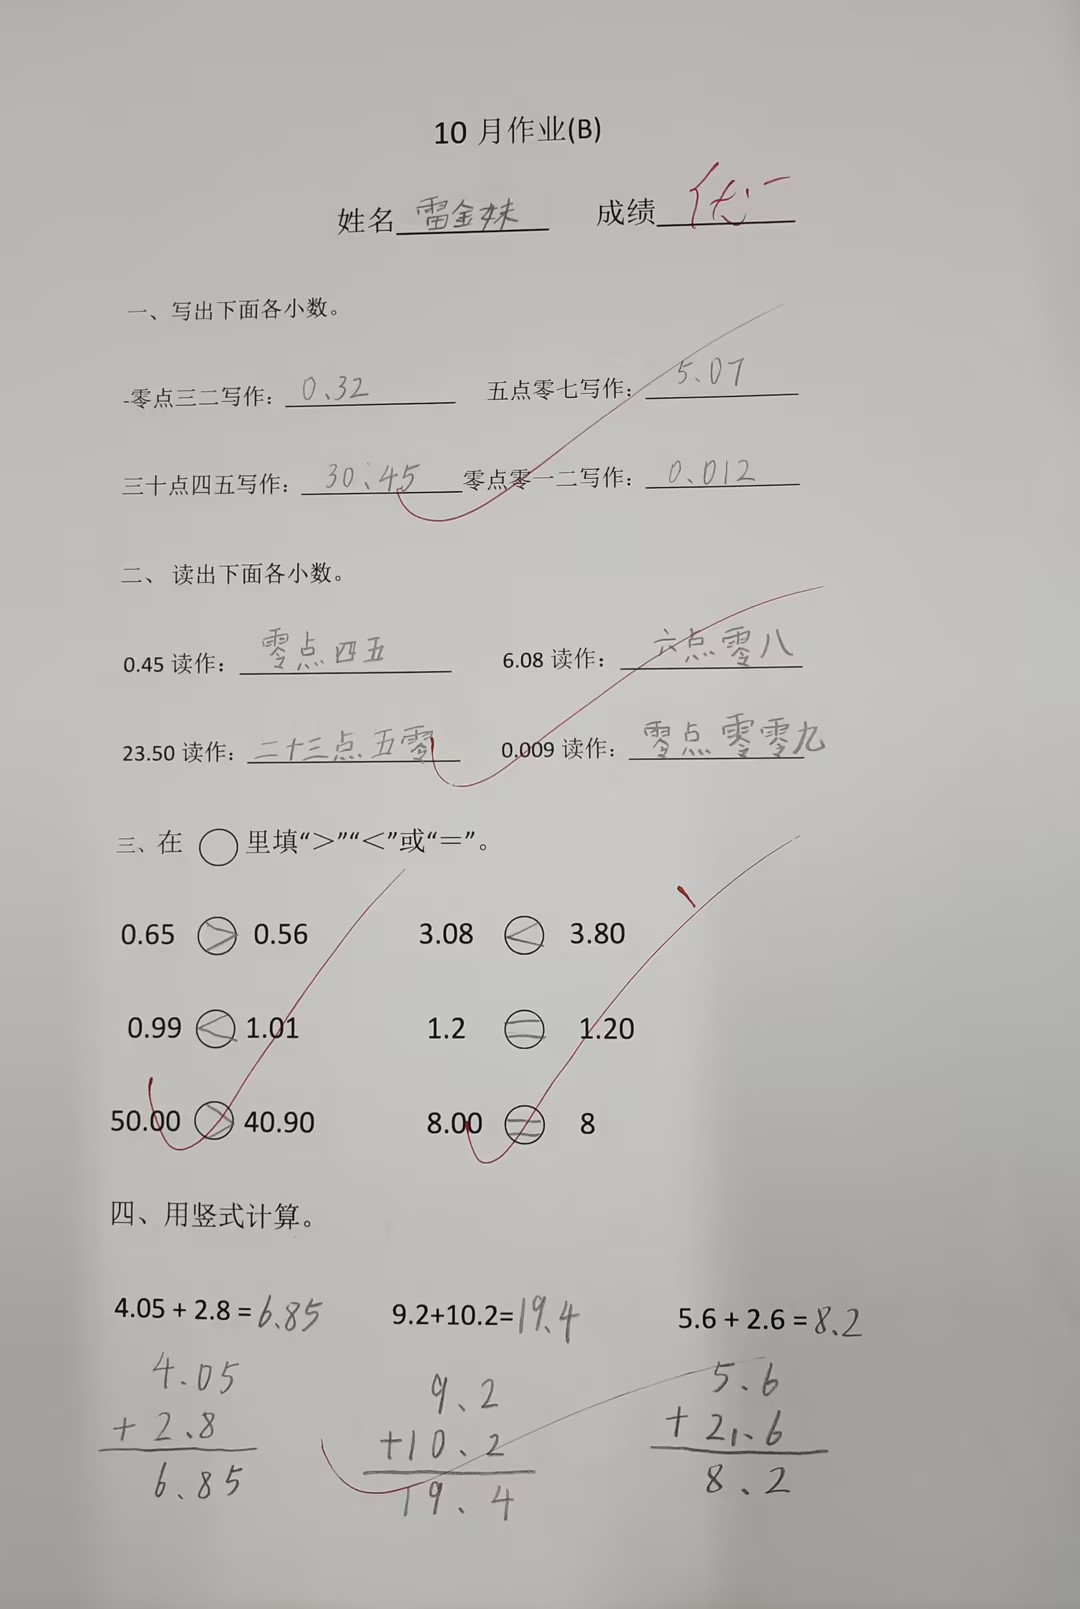 10 月作业(B)
姓名 雷金妹 成绩 优-
一、写出下面各小数。
-零点三二写作： 0.32 五点零七写作： 5.07
三十点四五写作： 30.45 零点零一二写作： 0.012
二、 读出下面各小数。
0.45 读作： 零点四五 6.08 读作： 六点零八
23.50 读作： 二十三点五零 0.009 读作： 零点零零九
三、在 ○ 里填“＞”“＜”或“＝”。
0.65 > 0.56 3.08 < 3.80
0.99 < 1.01 1.2 = 1.20
50.00 > 40.90 8.00 = 8
四、用竖式计算。
4.05 + 2.8 = 6.85 9.2+10.2= 19.4 5.6 + 2.6 = 8.2
4.05 9.2 5.6
+ 2.8 +10.2 + 2.6
6.85 19.4 8.2